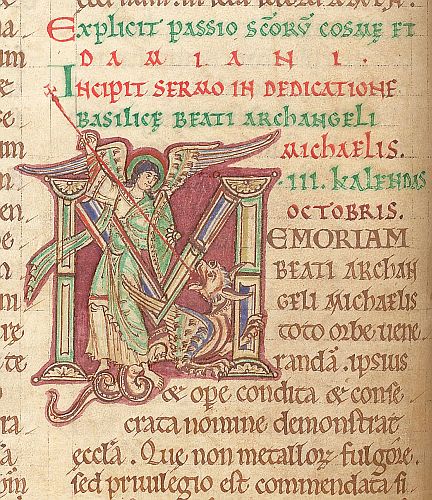 Explicit passio scōrū cosmę et
DAMIANI.
Incipit sermo in dedicatione
basilicę beati archangeli
michaelis.
.III. kalendas
octobris.
MEMORIAM
beati archan
geli michaelis
toto orbe uene
randā. ipsius
& ope condita & conse
crata nomine demonstrat
ecclā. Que non metallorꝝ fulgore,
sed priuilegio est commendata si